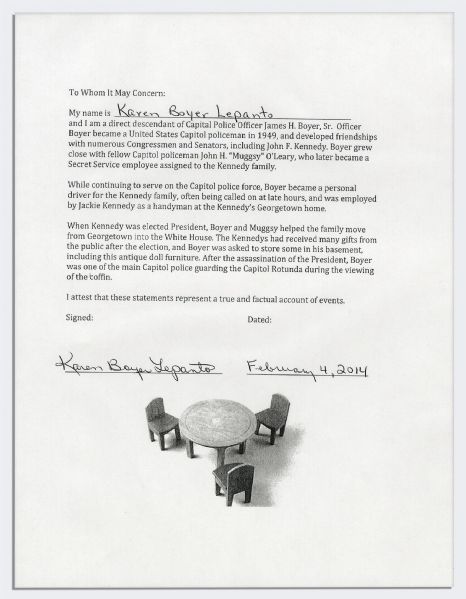 To Whom It May Concern:
My name is Karen Boyer Lepanto
and I am a direct descendant of Capital Police Officer James H. Boyer, Sr. Officer
Boyer became a United States Capitol policeman in 1949, and developed friendships
with numerous Congressmen and Senators, including John F. Kennedy. Boyer grew
close with fellow Capitol policeman John H. "Muggsy" O'Leary, who later became a
Secret Service employee assigned to the Kennedy family.
While continuing to serve on the Capitol police force, Boyer became a personal
driver for the Kennedy family, often being called on at late hours, and was employed
by Jackie Kennedy as a handyman at the Kennedy's Georgetown home.
When Kennedy was elected President, Boyer and Muggsy helped the family move
from Georgetown into the White House. The Kennedys had received many gifts from
the public after the election, and Boyer was asked to store some in his basement,
including this antique doll furniture. After the assassination of the President, Boyer
was one of the main Capitol police guarding the Capitol Rotunda during the viewing
of the coffin.
I attest that these statements represent a true and factual account of events.
Signed: Dated:
Karen Boyer Lepanto February 4, 2014